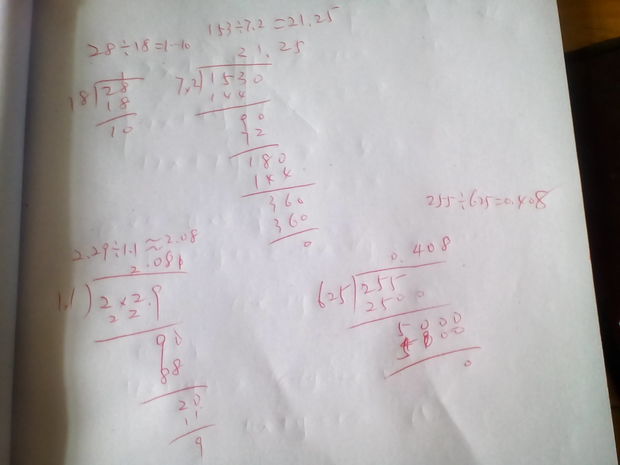 28÷18=1…10
1
18)28
18
10
153÷7.2=21.25
21.25
7.2)1530
144
90
72
180
144
360
360
0
2.29÷1.1≈2.08
2.081
1.1)2×2.9
2 2
90
88
20
11
9
255÷625=0.408
0.408
625)255
2500
5000
5000
0